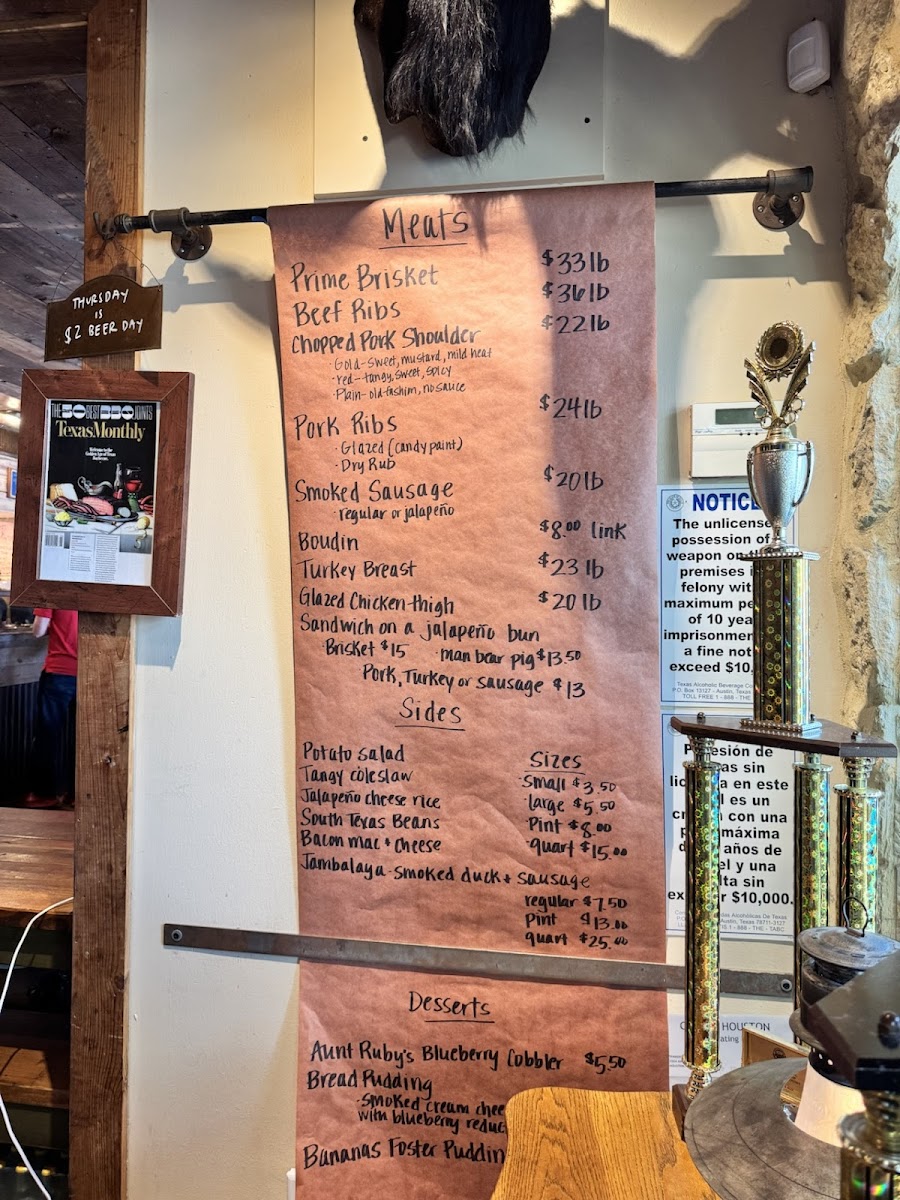 Meats
Prime Brisket $33 lb
Beef Ribs $36 lb
Chopped Pork Shoulder $22 lb
· Gold - sweet, mustard, mild heat
· red - tangy, sweet, spicy
· Plain - old-fashion, no sauce
Pork Ribs $24 lb
· Glazed (candy paint)
· Dry Rub
Smoked Sausage $20 lb
· regular or jalapeño
Boudin $8.00 link
Turkey Breast $23 lb
Glazed Chicken-thigh $20 lb
Sandwich on a jalapeño bun
· Brisket $15 · man bear pig $13.50
Pork, Turkey or sausage $13
Sides
Potato salad
Tangy coleslaw
Jalapeño cheese rice
South Texas Beans
Bacon mac + cheese
Jambalaya - smoked duck + sausage
Sizes
· small $3.50
· large $5.50
· Pint $8.00
· quart $15.00
regular $7.50
pint $13.00
quart $25.00
Desserts
Aunt Ruby's Blueberry Cobbler $5.50
Bread Pudding
· smoked cream chee
with blueberry reduc
Bananas Foster Puddin
THURSDAY
IS
$2 BEER DAY
THE 50 BEST BBQ JOINTS
TexasMonthly
NOTICE
The unlicense
possession of
weapon on th
premises i
felony wit
maximum pe
of 10 yea
imprisonmen
a fine not
exceed $10,
Texas Alcoholic Beverage Co
P.O. Box 13127 - Austin, Texas
TOLL FREE 1 - 888 - THE
P esión de
as sin
lic a en este
l es un
c con una
p máxima
d años de
el y una
lta sin
ex r $10,000.
Alcohólicas De Texas
Austin, Texas 78711-3127
1 - 888 - THE - TABC
HOUSTON